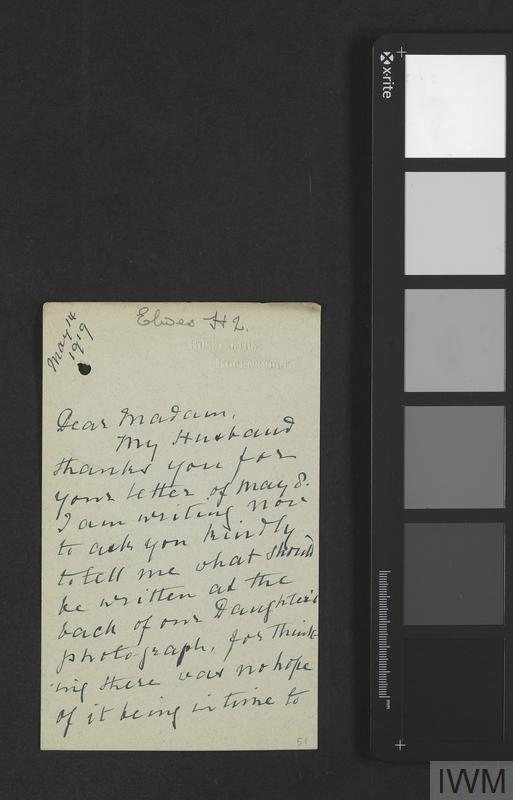 x·rite
Elwes H 2.
May 14
1919
Dear Madam,
My Husband
thanks you for
your letter of May 8.
I am writing now
to ask you kindly
to tell me what should
be written at the
back of our Daughter's
photograph, for think
-ing there was no hope
of it being in time to
51
mm
IWM